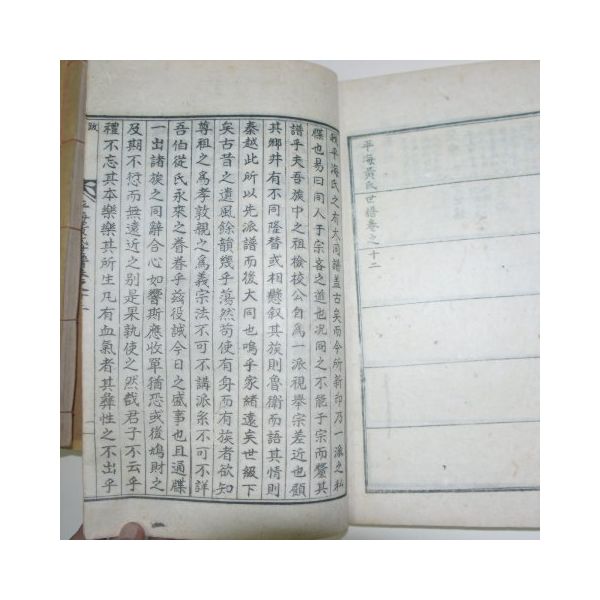 平海黃氏世譜卷之十二
我平海氏之有大同譜盖古矣而今所新印乃一派之私
牒也易曰同人于宗吝之道也况同之不能于宗而釐其
譜乎夫吾族中之祖檢校公自爲一派視擧宗差近也顧
其鄉井有不同隆替或相懸叙其族則魯衛而語其情則
秦越此所以先派譜而後大同也嗚乎家緖遠矣世級下
矣古昔之遺風餘韻幾乎蕩然苟使有身而有族者欲知
尊祖之爲孝敦親之爲義宗法不可不講派系不可不詳
吾伯從氏永來之眷眷乎玆役誠今日之盛事也且通牒
一出諸族之同辭合心如響斯應收單猶恐或後鳩財之
及期不愆而無遠近之別是果孰使之然哉君子不云乎
禮不忘其本樂樂其所生凡有血氣者其彝性之不出乎
跋